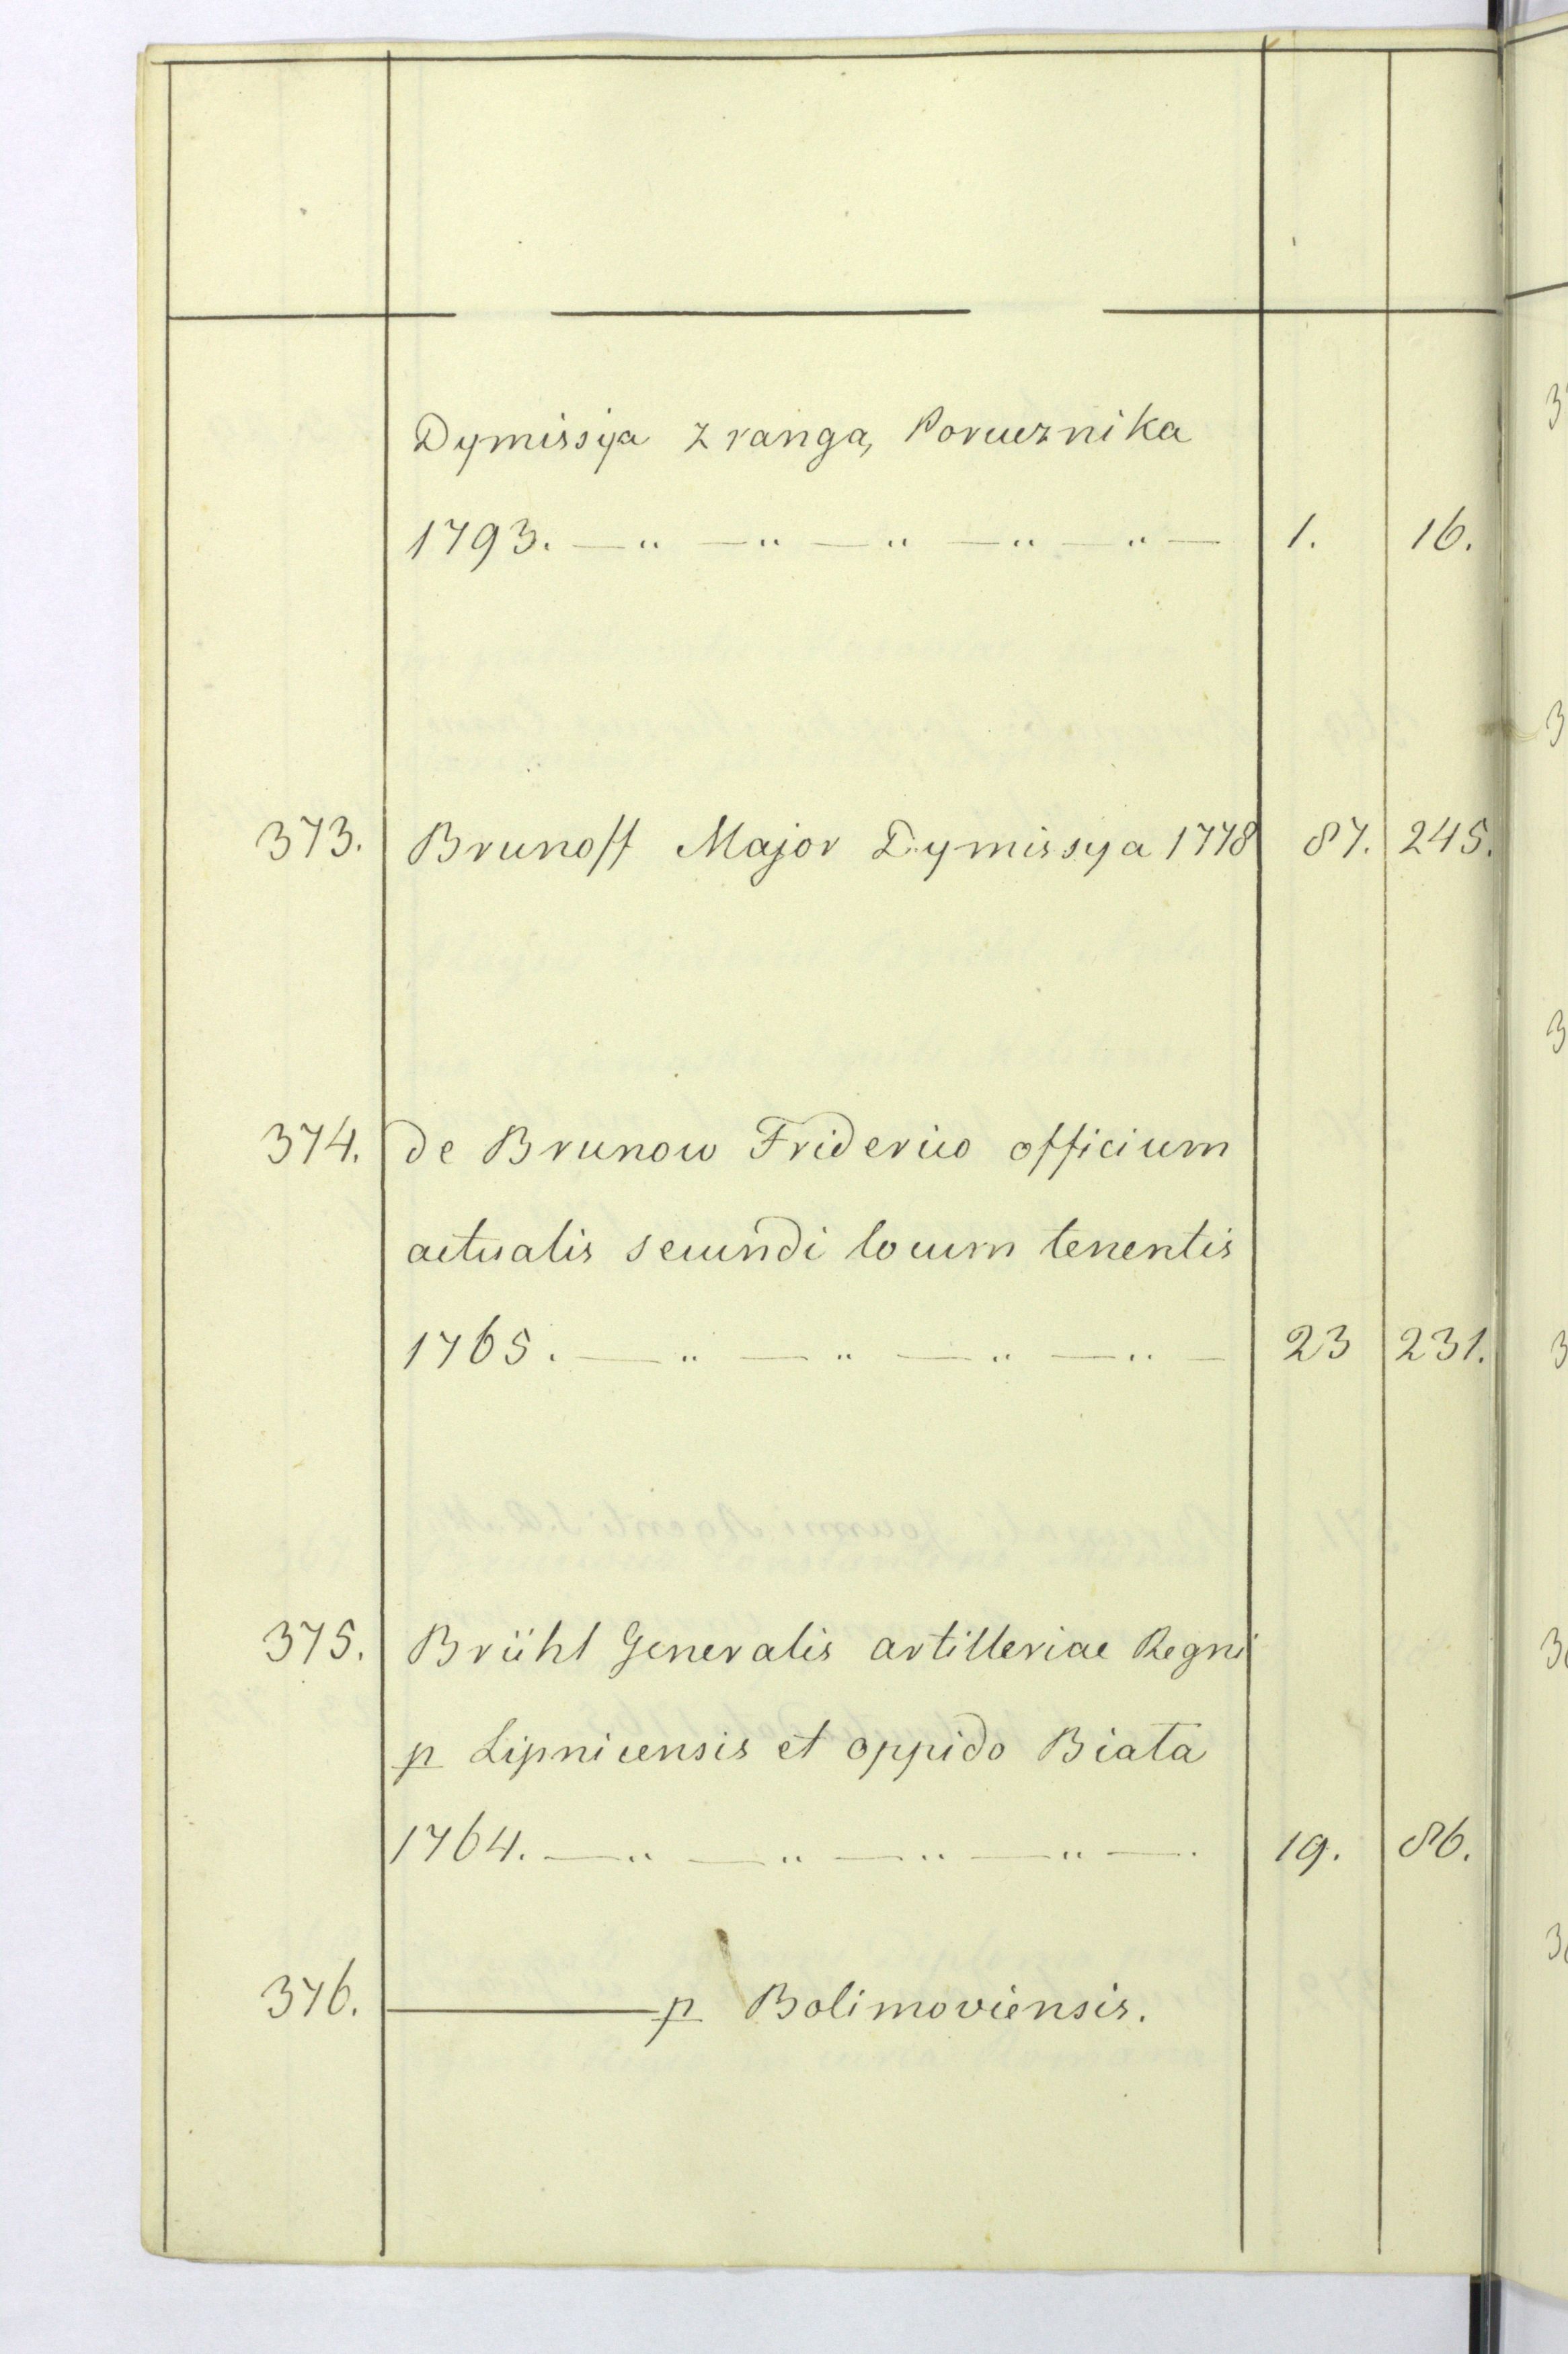 Dymissya z rangą Porucznika
1793. — „ — „ — „ — „ — „ — 1. 16.
373. Brunoff Major Dymissya 1778 87. 245.
374. de Brunow Friderico officium
actualis secundi locum tenentis
1765. — „ — „ — „ — „ — 23 231.
375. Brühl Generalis artilleriae Regni
p Lipnicensis et oppido Biała
1764. — „ — „ — „ — „ — 19. 86.
376. ——— p Bolimoviensis.